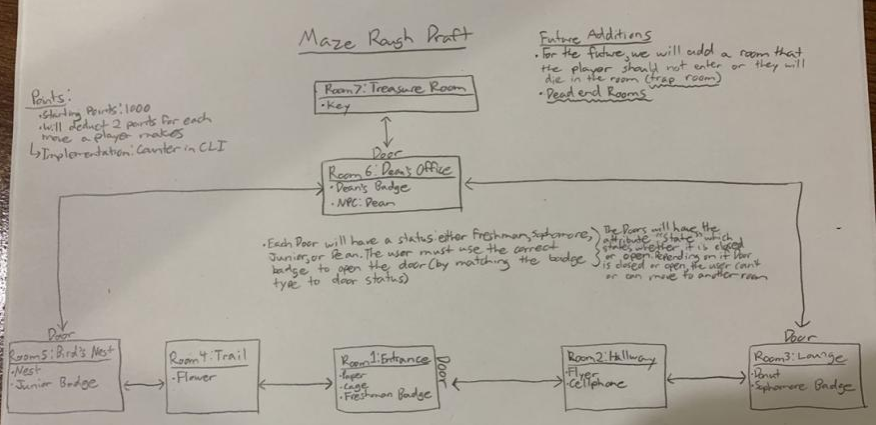 Maze Rough Draft
Future Additions
• For the future, we will add a room that
the player should not enter or they will
die in the room (trap room)
• Dead end Rooms
Points:
• Starting Points: 1000
• Will deduct 2 points for each
move a player makes
↳ Implementation: Counter in CLI
Room 7: Treasure Room
• Key
Door
Room 6: Dean's Office
• Dean's Badge
• NPC: Dean
• Each Door will have a status either Freshman, Sophomore,
Junior, or Dean. The user must use the correct
badge to open the door (by matching the badge
type to door status)
The Doors will have the
attribute "state" which
states whether it is closed
or open. Depending on if Door
is closed or open, the user can't
or can move to another room
Door
Room 5: Bird's Nest
• Nest
• Junior Badge
Room 4: Trail
• Flower
Room 1: Entrance
• Paper
• Cage
• Freshman Badge
Door
Room 2: Hallway
• Flyer
• Cellphone
Door
Room 3: Lounge
• Donut
• Sophomore Badge